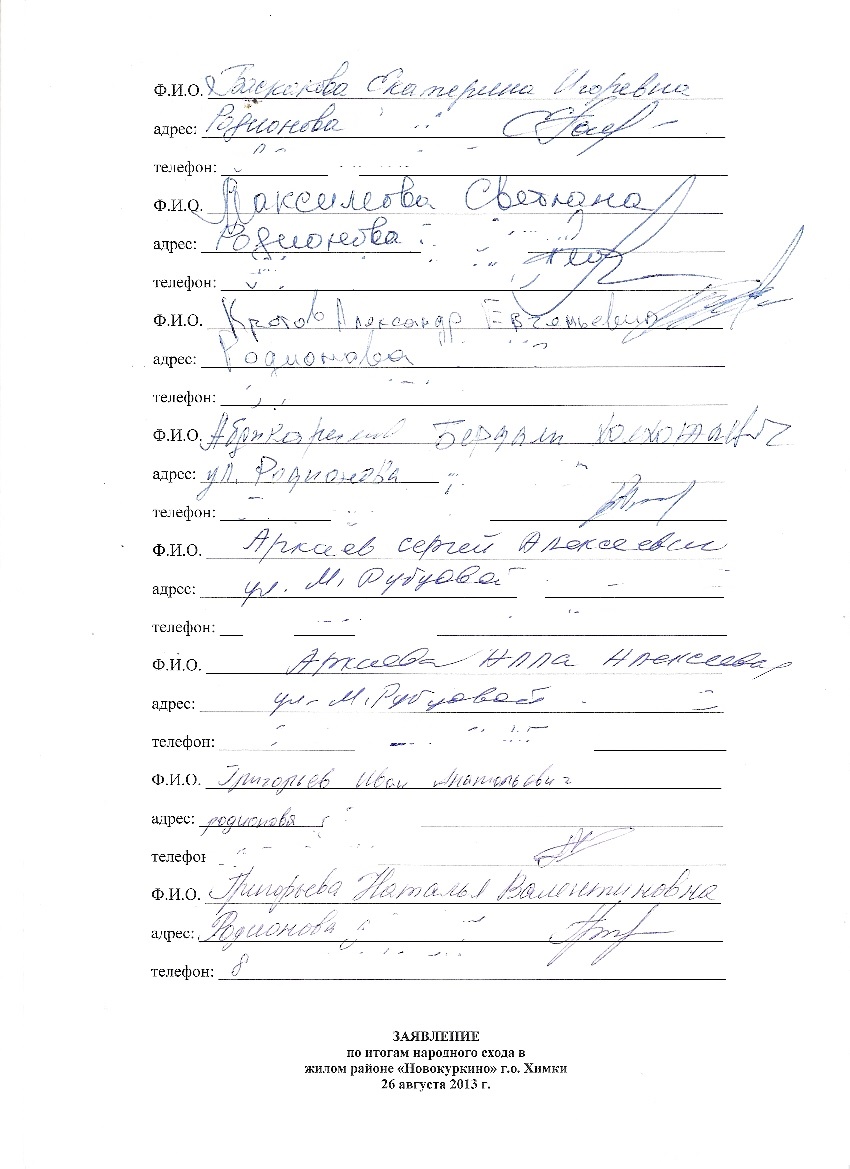 Ф.И.О. Баскакова Екатерина Игоревна
адрес: Родионова
телефон:
Ф.И.О. Максимова Светлана
адрес: Родионова
телефон:
Ф.И.О. Кротов Александр Евгеньевич
адрес: Родионова
телефон:
Ф.И.О. Абдикаримов
адрес: ул. Родионова
телефон:
Ф.И.О. Аркаев Сергей Алексеевич
адрес: ул. М. Рубцовой
телефон:
Ф.И.О. Аркаева Алла Алексеевна
адрес: ул. М. Рубцовой
телефон:
Ф.И.О. Григорьев Иван Анатольевич
адрес: родионова
телефон
Ф.И.О. Григорьева Наталья Валентиновна
адрес: Родионова
телефон: 8
ЗАЯВЛЕНИЕ
по итогам народного схода в
жилом районе «Новокуркино» г.о. Химки
26 августа 2013 г.